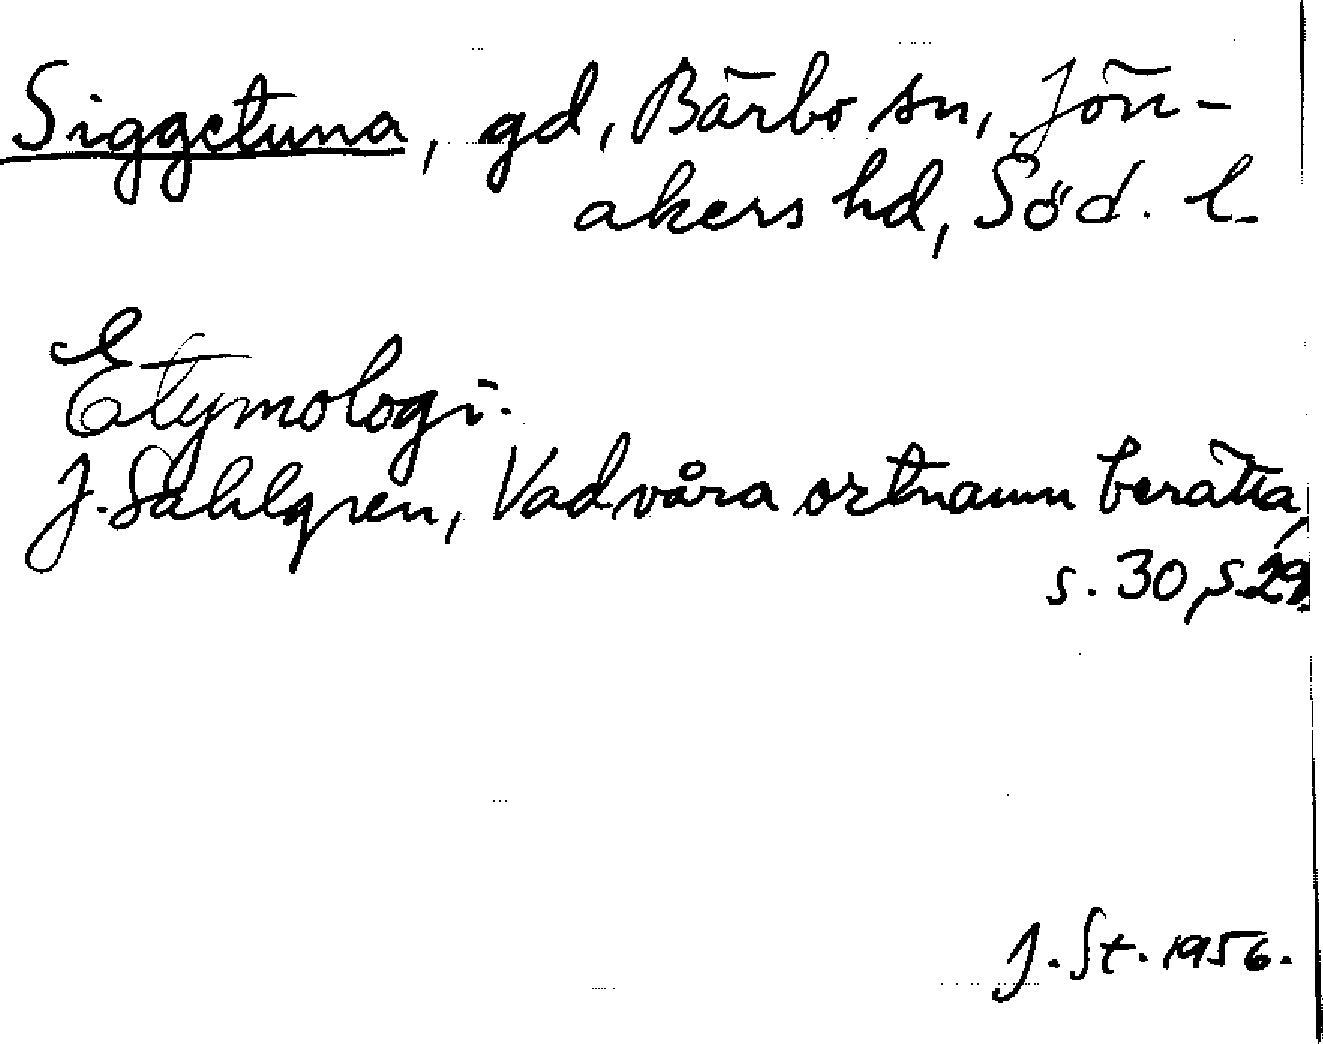 Siggetuna, gd, Bärbo sn, Jön-
akers hd, Söd. l.
Etymologi.
J. Sahlgren, Vad våra ortnamn berätta,
s. 30, s. 29.
J. St. 1956.